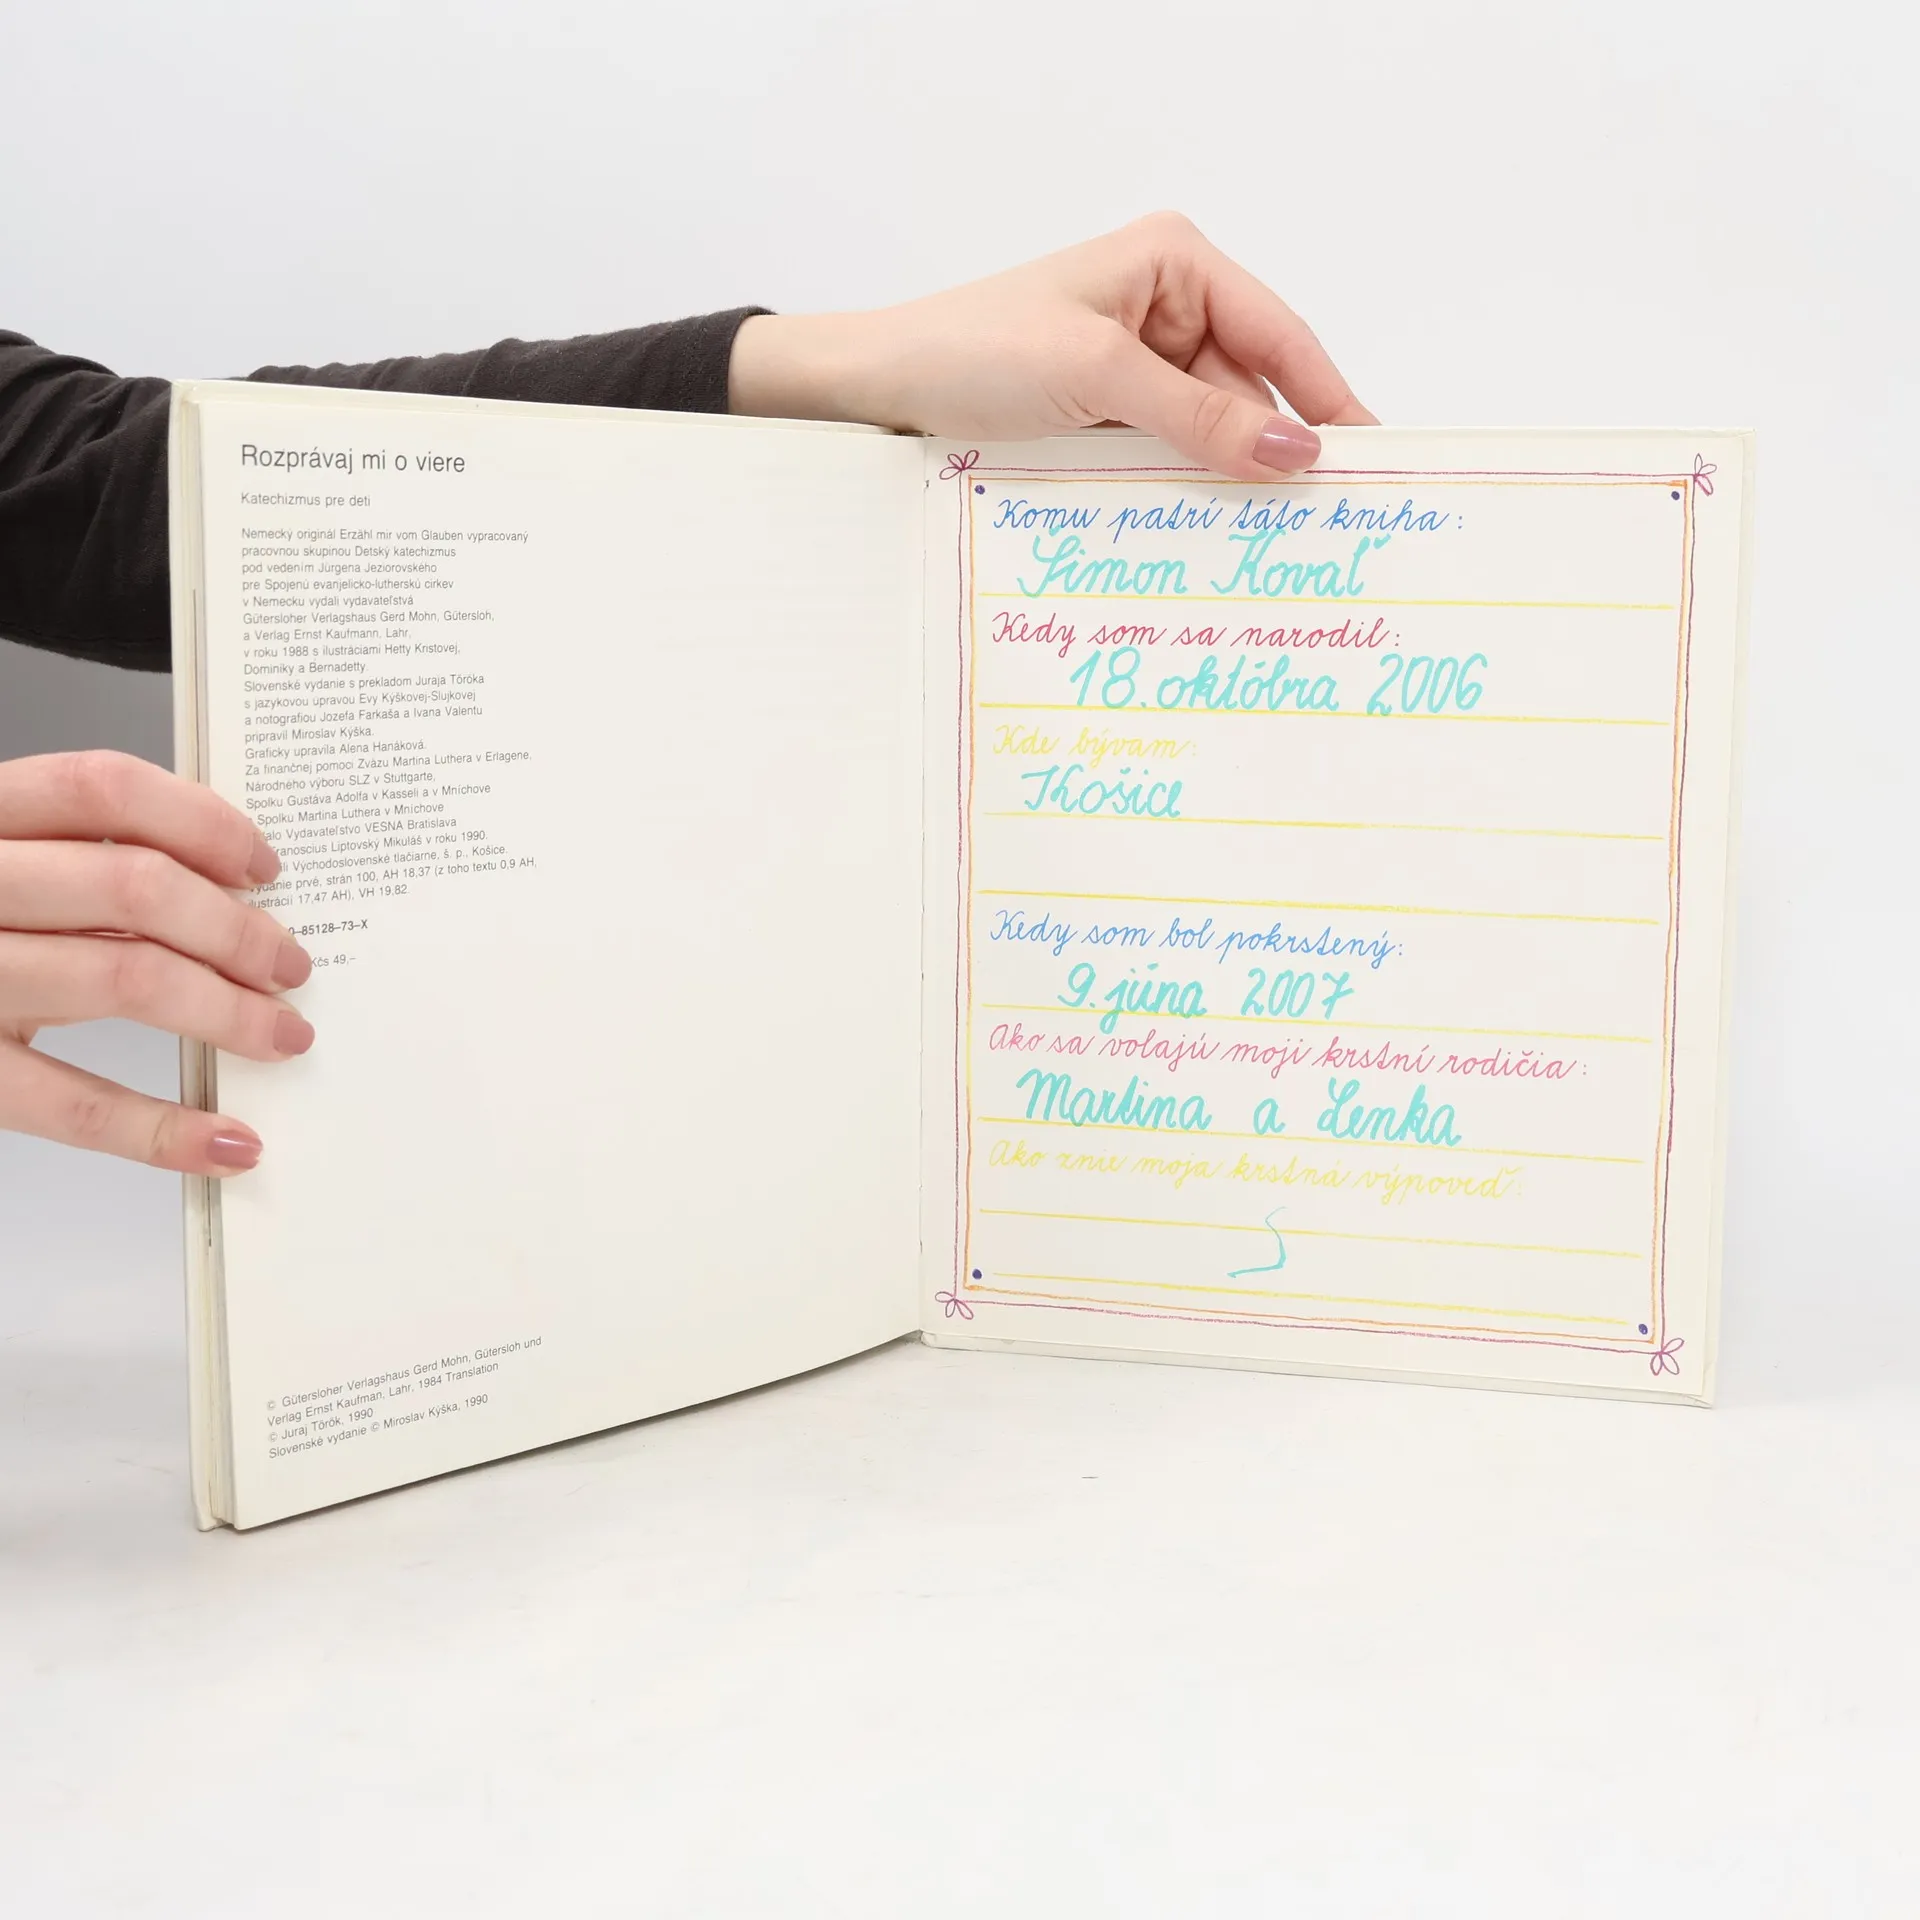 Rozprávaj mi o viere
Katechizmus pre deti
Nemecký originál Erzähl mir vom Glauben vypracovaný
pracovnou skupinou Detský katechizmus
pod vedením Jürgena Jeziorovského
pre Spojenú evanjelicko-luterskú cirkev
v Nemecku vydali vydavateľstvá
Gütersloher Verlagshaus Gerd Mohn, Gütersloh,
a Verlag Ernst Kaufmann, Lahr,
v roku 1988 s ilustráciami Hetty Kristovej,
Dominiky a Bernadetty.
Slovenské vydanie s prekladom Juraja Töröka
s jazykovou úpravou Evy Kýškovej-Slujkovej
a notografiou Jozefa Farkaša a Ivana Valentu
pripravil Miroslav Kýška.
Graficky upravila Alena Hanáková.
Za finančnej pomoci Zväzu Martina Luthera v Erlagene,
Národného výboru SLZ v Stuttgarte,
Spolku Gustáva Adolfa v Kasseli a v Mníchove
Spolku Martina Luthera v Mníchove
Vydavateľstvo VESNA Bratislava
Liptovský Mikuláš v roku 1990.
Východoslovenské tlačiarne, š. p., Košice.
prvé, strán 100, AH 18,37 (z toho textu 0,9 AH,
17,47 AH), VH 19,82.
85128–73–X
Kčs 49,–
© Gütersloher Verlagshaus Gerd Mohn, Gütersloh und
Verlag Ernst Kaufman, Lahr, 1984 Translation
© Juraj Török, 1990
Slovenské vydanie © Miroslav Kýška, 1990
Komu patrí táto kniha:
Šimon Kovaľ
Kedy som sa narodil:
18. októbra 2006
Kde bývam:
Košice
Kedy som bol pokrstený:
9. júna 2007
Ako sa volajú moji krstní rodičia:
Martina a Lenka
Ako znie moja krstná výpoveď: